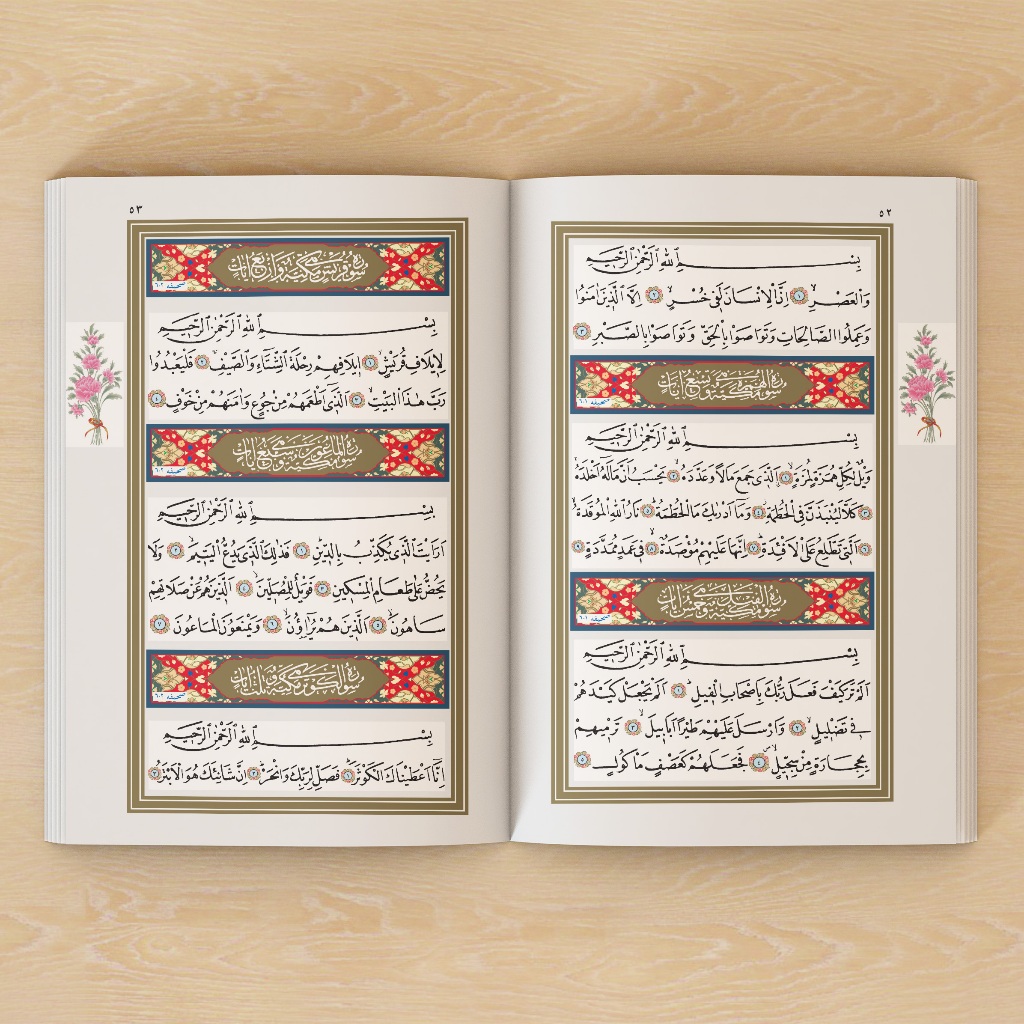 ٥٢
بِسْمِ اللّٰهِ الرَّحْمٰنِ الرَّحِيمِ
وَالْعَصْرِۙ ﴿١﴾ اِنَّ الْاِنْسَانَ لَفِي خُسْرٍۙ ﴿٢﴾ اِلَّا الَّذِينَ اٰمَنُوا
وَعَمِلُوا الصَّالِحَاتِ وَتَوَاصَوْا بِالْحَقِّ وَتَوَاصَوْا بِالصَّبْرِ ﴿٣﴾
سورة الهمزة مكية وهي تسع آيات
صحيفه ٦٠١
بِسْمِ اللّٰهِ الرَّحْمٰنِ الرَّحِيمِ
وَيْلٌ لِكُلِّ هُمَزَةٍ لُمَزَةٍۙ ﴿١﴾ اَلَّذِي جَمَعَ مَالًا وَعَدَّدَهُۙ ﴿٢﴾ يَحْسَبُ اَنَّ مَالَهُ اَخْلَدَهُۚ
﴿٣﴾ كَلَّا لَيُنْبَذَنَّ فِي الْحُطَمَةِۘ ﴿٤﴾ وَمَا اَدْرٰيكَ مَا الْحُطَمَةُۜ ﴿٥﴾ نَارُ اللّٰهِ الْمُوقَدَةُۙ
﴿٦﴾ اَلَّتِي تَطَّلِعُ عَلَى الْاَفْـِٔدَةِۜ ﴿٧﴾ اِنَّهَا عَلَيْهِمْ مُؤْصَدَةٌۙ ﴿٨﴾ فِي عَمَدٍ مُمَدَّدَةٍ ﴿٩﴾
سورة الفيل مكية وهي خمس آيات
صحيفه ٦٠١
بِسْمِ اللّٰهِ الرَّحْمٰنِ الرَّحِيمِ
اَلَمْ تَرَ كَيْفَ فَعَلَ رَبُّكَ بِاَصْحَابِ الْفِيلِۜ ﴿١﴾ اَلَمْ يَجْعَلْ كَيْدَهُمْ
فِي تَضْلِيلٍۙ ﴿٢﴾ وَاَرْسَلَ عَلَيْهِمْ طَيْرًا اَبَابِيلَۙ ﴿٣﴾ تَرْمِيهِمْ
بِحِجَارَةٍ مِنْ سِجِّيلٍۙ ﴿٤﴾ فَجَعَلَهُمْ كَعَصْفٍ مَأْكُولٍ ﴿٥﴾
٥٣
سورة قريش مكية وهي اربع آيات
صحيفه ٦٠٢
بِسْمِ اللّٰهِ الرَّحْمٰنِ الرَّحِيمِ
لِاِيلَافِ قُرَيْشٍۙ ﴿١﴾ اِيلَافِهِمْ رِحْلَةَ الشِّتَاءِ وَالصَّيْفِۚ ﴿٢﴾ فَلْيَعْبُدُوا
رَبَّ هٰذَا الْبَيْتِۙ ﴿٣﴾ اَلَّذِي اَطْعَمَهُمْ مِنْ جُوعٍ وَاٰمَنَهُمْ مِنْ خَوْفٍ ﴿٤﴾
سورة الماعون مكية وهي سبع آيات
صحيفه ٦٠٢
بِسْمِ اللّٰهِ الرَّحْمٰنِ الرَّحِيمِ
اَرَاَيْتَ الَّذِي يُكَذِّبُ بِالدِّينِۜ ﴿١﴾ فَذٰلِكَ الَّذِي يَدُعُّ الْيَتِيمَۙ ﴿٢﴾ وَلَا
يَحُضُّ عَلٰى طَعَامِ الْمِسْكِينِۜ ﴿٣﴾ فَوَيْلٌ لِلْمُصَلِّينَۙ ﴿٤﴾ اَلَّذِينَ هُمْ عَنْ صَلَاتِهِمْ
سَاهُونَۙ ﴿٥﴾ اَلَّذِينَ هُمْ يُرَاؤُنَۙ ﴿٦﴾ وَيَمْنَعُونَ الْمَاعُونَ ﴿٧﴾
سورة الكوثر مكية وهي ثلاث آيات
صحيفه ٦٠٢
بِسْمِ اللّٰهِ الرَّحْمٰنِ الرَّحِيمِ
اِنَّا اَعْطَيْنَاكَ الْكَوْثَرَۜ ﴿١﴾ فَصَلِّ لِرَبِّكَ وَانْحَرْۜ ﴿٢﴾ اِنَّ شَانِئَكَ هُوَ الْاَبْتَرُ ﴿٣﴾